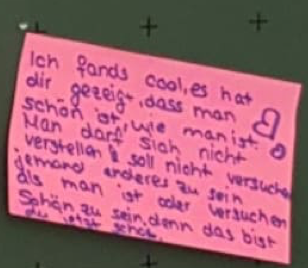 Ich fands cool, es hat
dir gezeigt, dass man
schön ist, wie man ist.
Man darf sich nicht
verstellen & soll nicht versuchen
jemand anderes zu sein
als man ist oder versuchen
Schön zu sein, denn das bist
du jetzt schon.